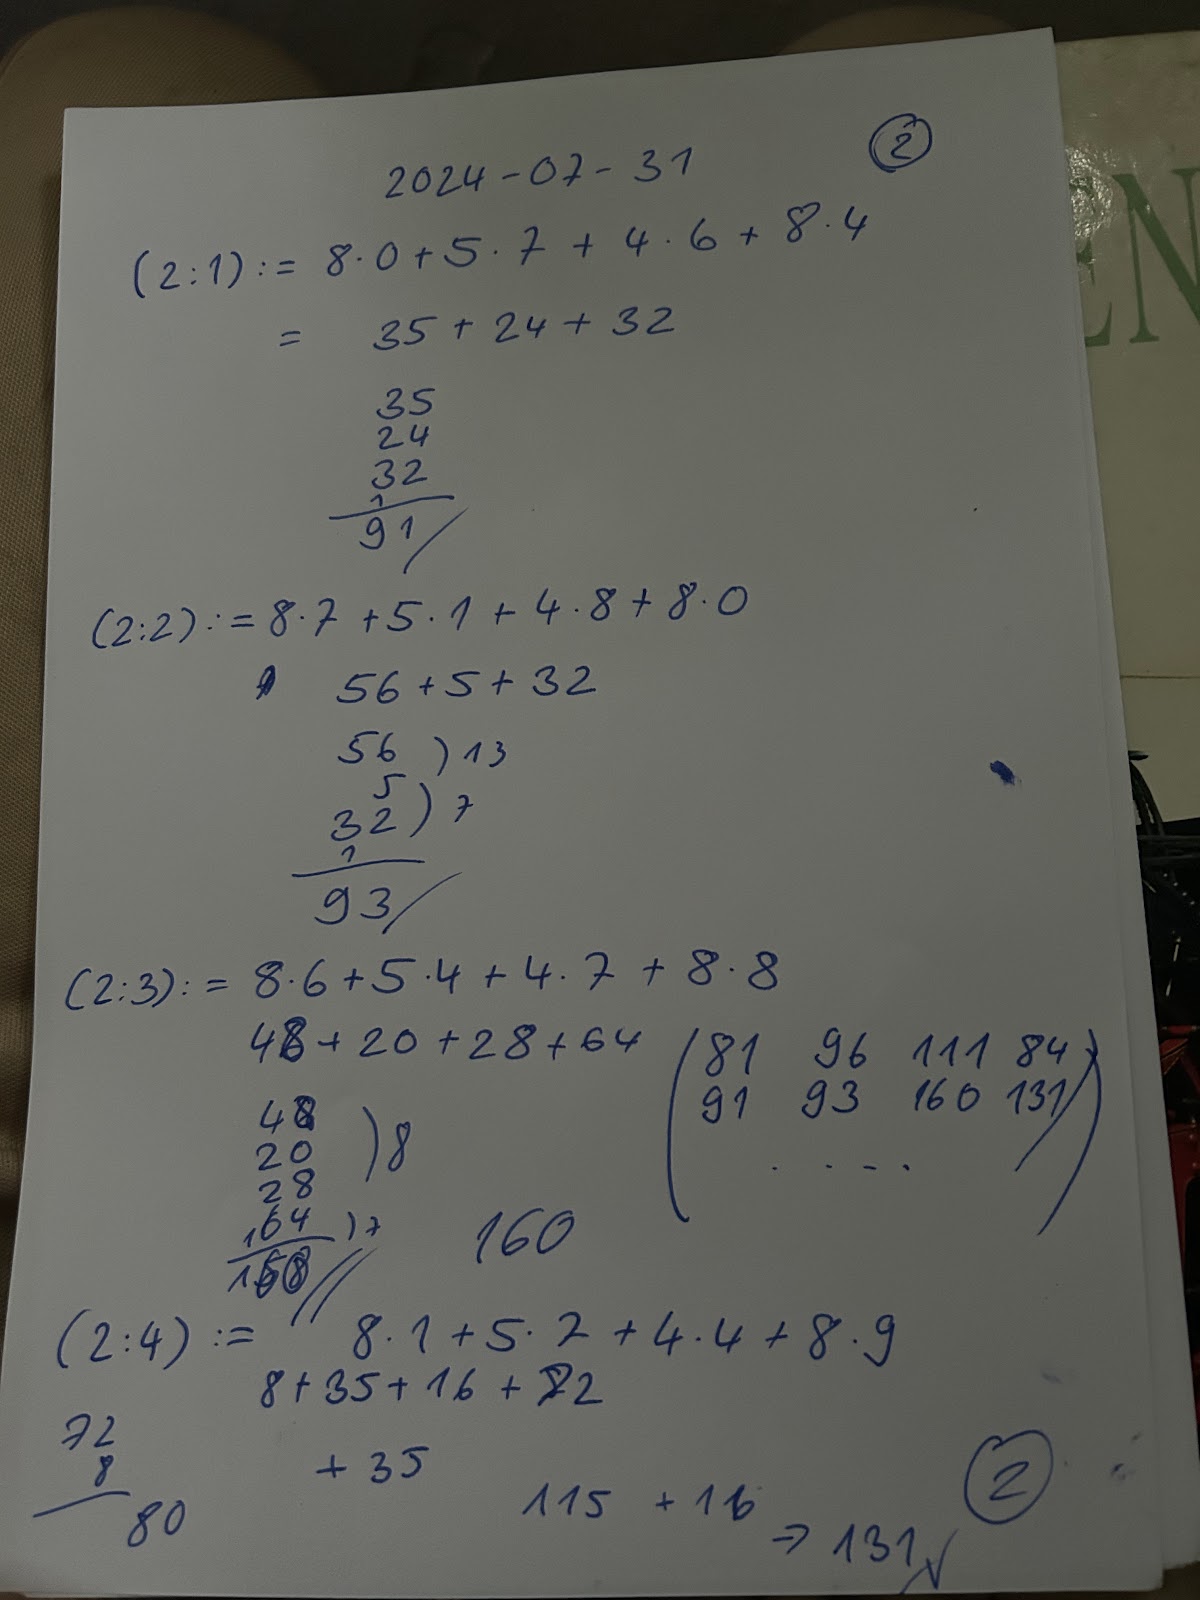 2024-07-31 2
(2:1) := 8·0+5·7+4·6+8·4
= 35+24+32
35
24
32
1
91
(2:2) := 8·7+5·1+4·8+8·0
56+5+32
56 )13
5
32 )7
1
93
(2:3) := 8·6+5·4+4·7+8·8
48+20+28+64
48
20 )8
28
64 )7
1
160
160
(81 96 111 84)
91 93 160 131
. . - - .
(2:4) := 8·1+5·7+4·4+8·9
8+35+16+72
72
8
80
+35
115 +16
→ 131√
2
EN